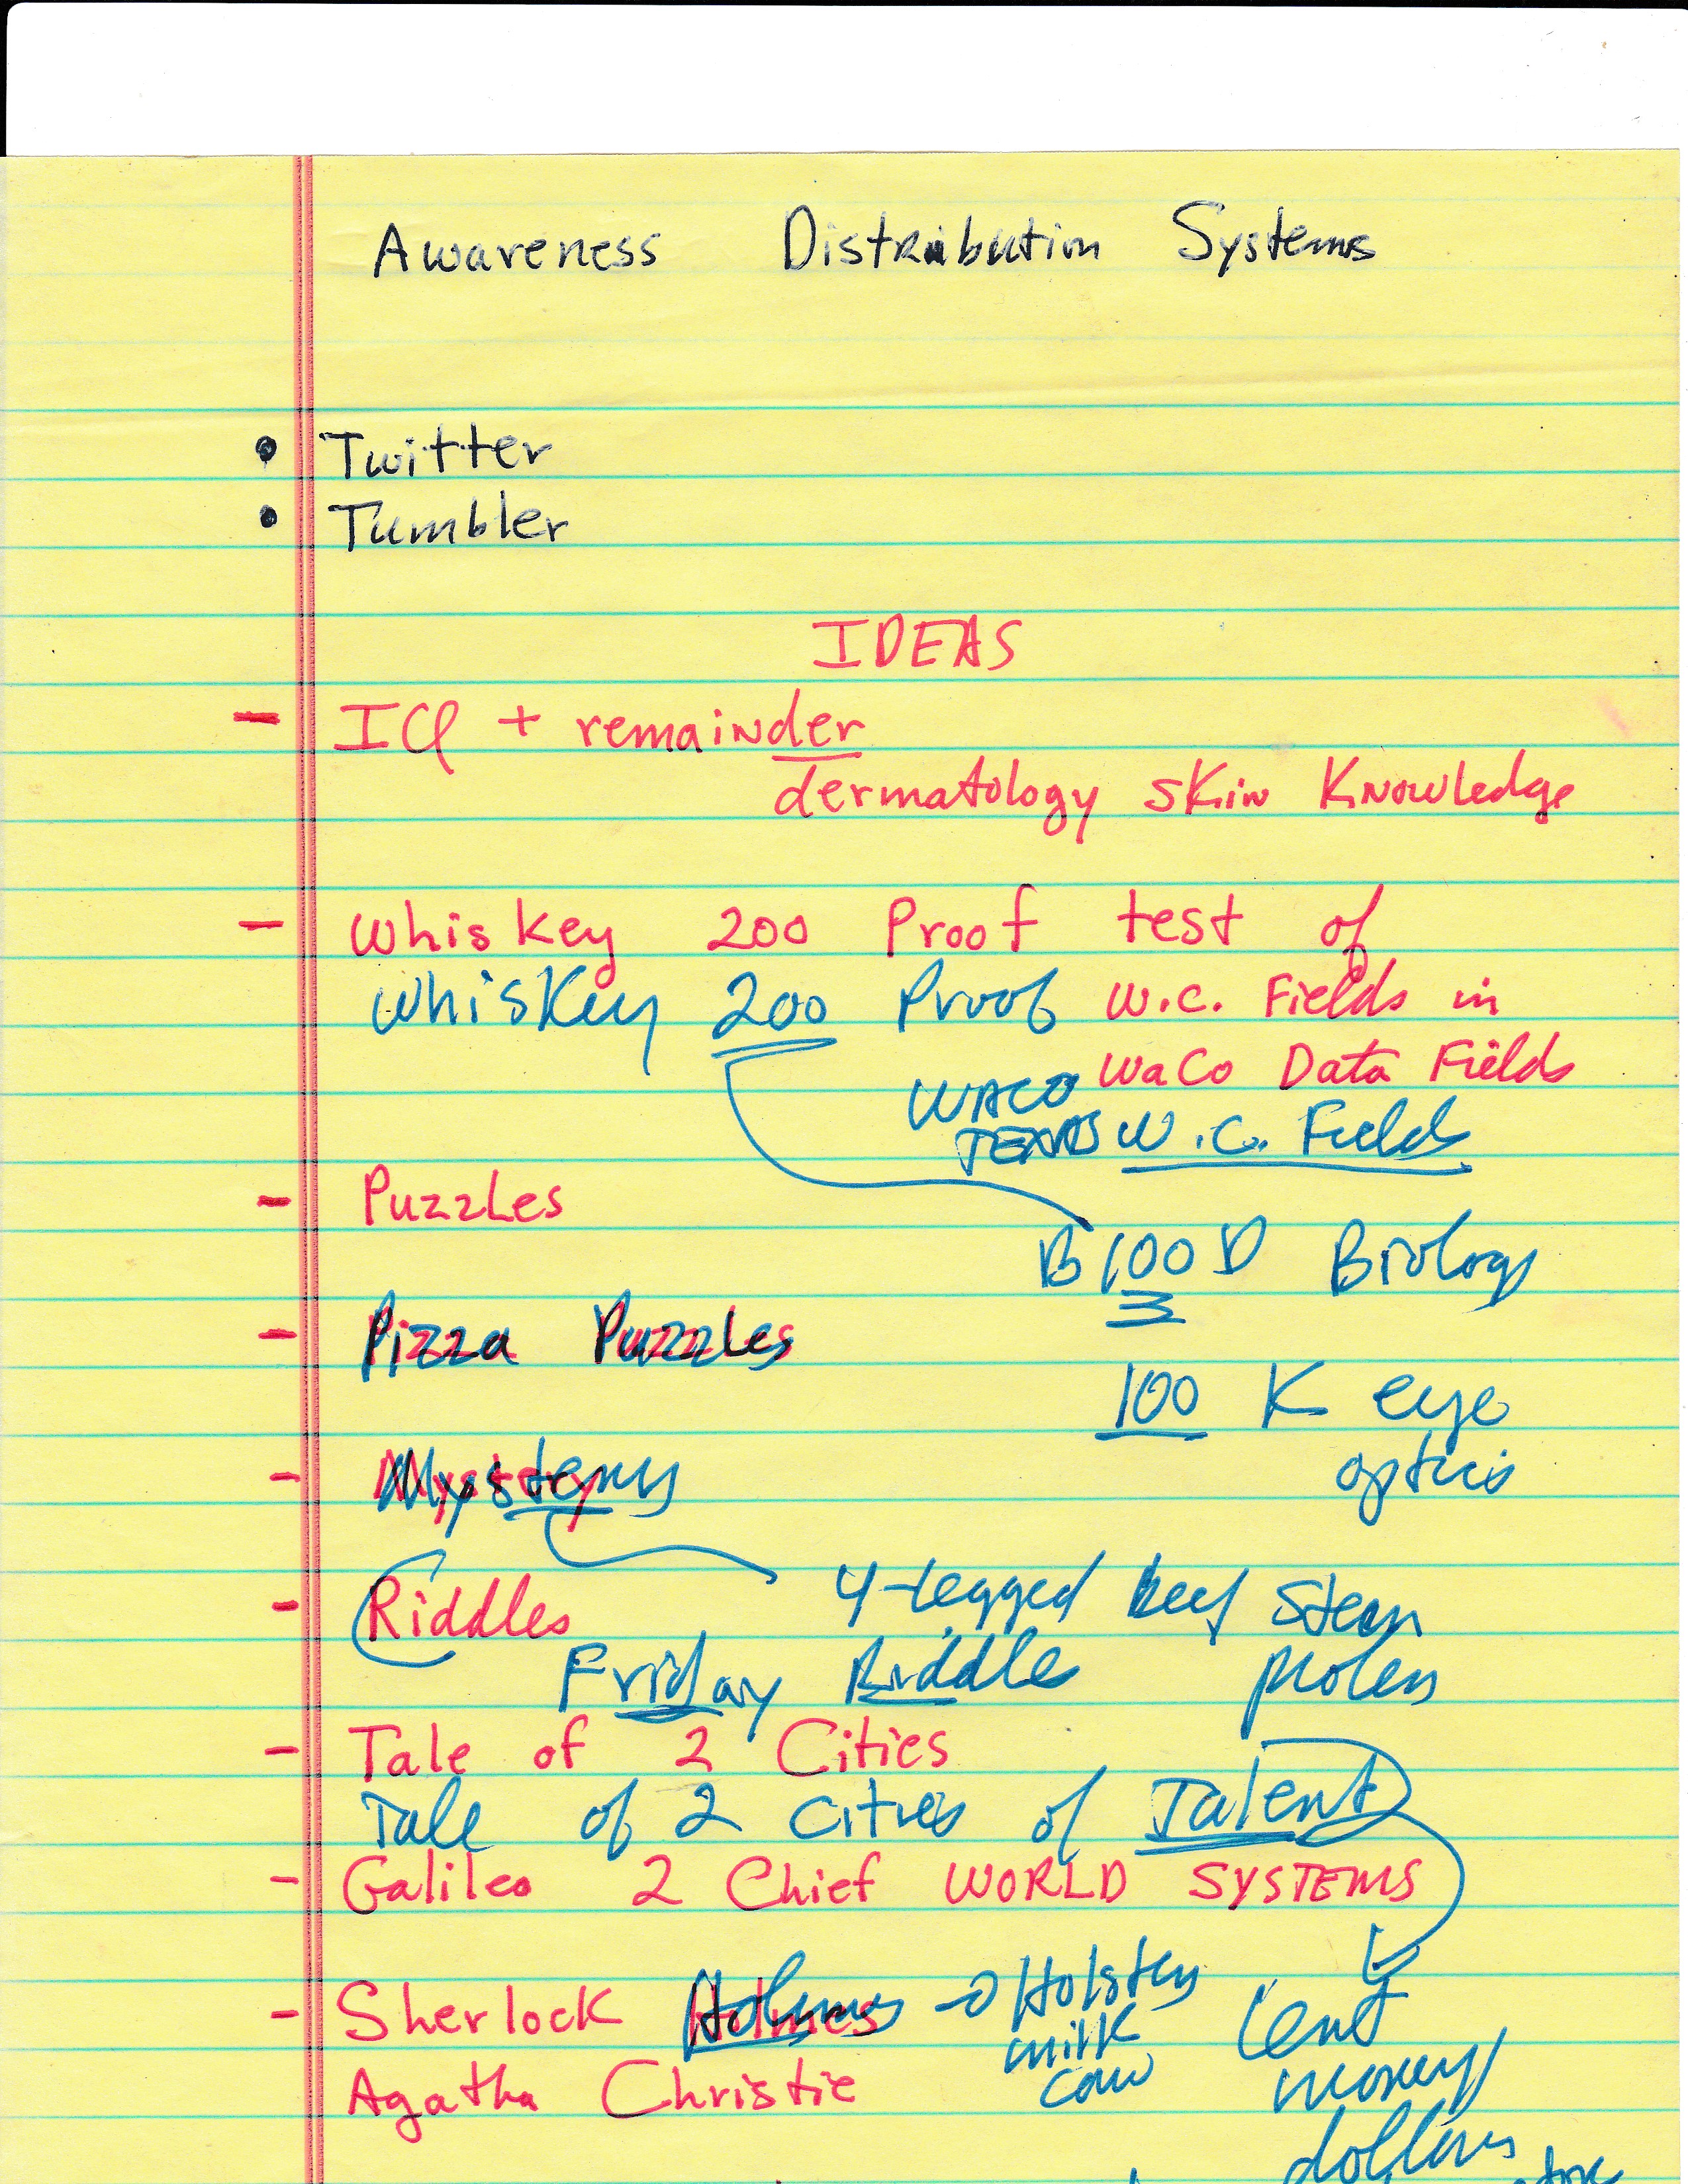 Awareness Distribution Systems
• Twitter
• Tumbler
IDEAS
- ICQ + remainder
dermatology skin Knowledge
- Whiskey 200 Proof test of
Whiskey 200 Proof W.C. Fields in
WACO WaCo Data Fields
TEXAS W.C. Fields
- Puzzles
B100D Biology
- Pizza Puzzles
100 K eye
optics
- Mystery
4-legged beef
- Riddles
Friday Riddle
- Tale of 2 Cities
Tale of 2 Cities of Talent
- Galileo 2 Chief WORLD SYSTEMS
- Sherlock Holmes → Holsten
milk
cow
Lent
money
Agatha Christie
dollars